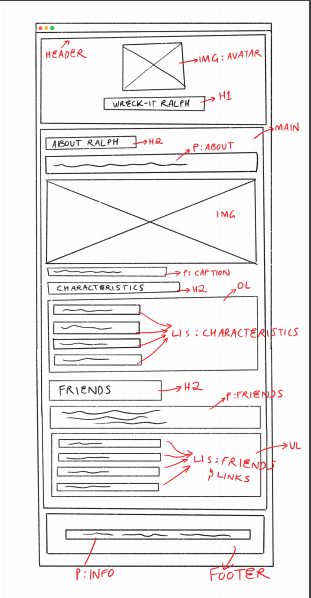 HEADER
IMG: AVATAR
WRECK-IT RALPH
H1
MAIN
ABOUT RALPH
H2
P: ABOUT
IMG
P: CAPTION
CHARACTERISTICS
H2
OL
LIS: CHARACTERISTICS
FRIENDS
H2
P: FRIENDS
UL
LIS: FRIENDS
& LINKS
P: INFO
FOOTER